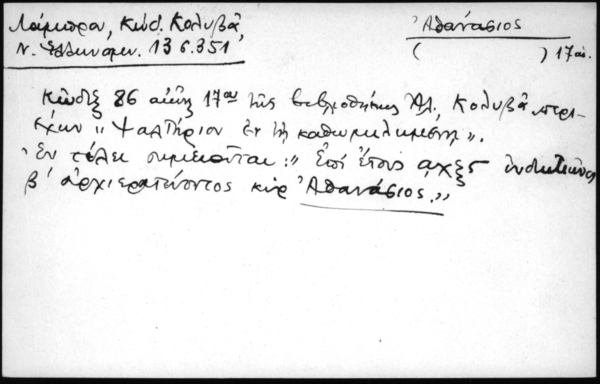 Λάμπρου, Κώδ. Κολυβᾶ,
Ν. Ἑλληνομν. 13 σ. 351
Ἀθανάσιος
( ) 17 αἰ.
Κῶδιξ 86 αἰῶν 17ου τῆς βιβλιοθήκης Ἀλ. Κολυβᾶ περι-
έχων "Ψαλτήριον ἐν τῇ καθωμιλημένῃ".
Ἐν τέλει σημειοῦται: "Ἐπὶ ἔτους αχξς ἰνδικτιῶνος
β' ἀρχιερατεύοντος κὺρ Ἀθανάσιος."